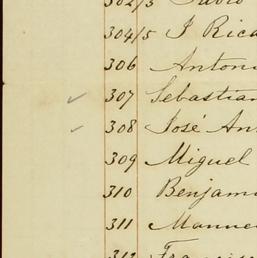 302/3
304/5 J Rica
306 Antoni
307 Sebastian
308 José An
309 Miguel
310 Benjami
311 Manue
312 Francis